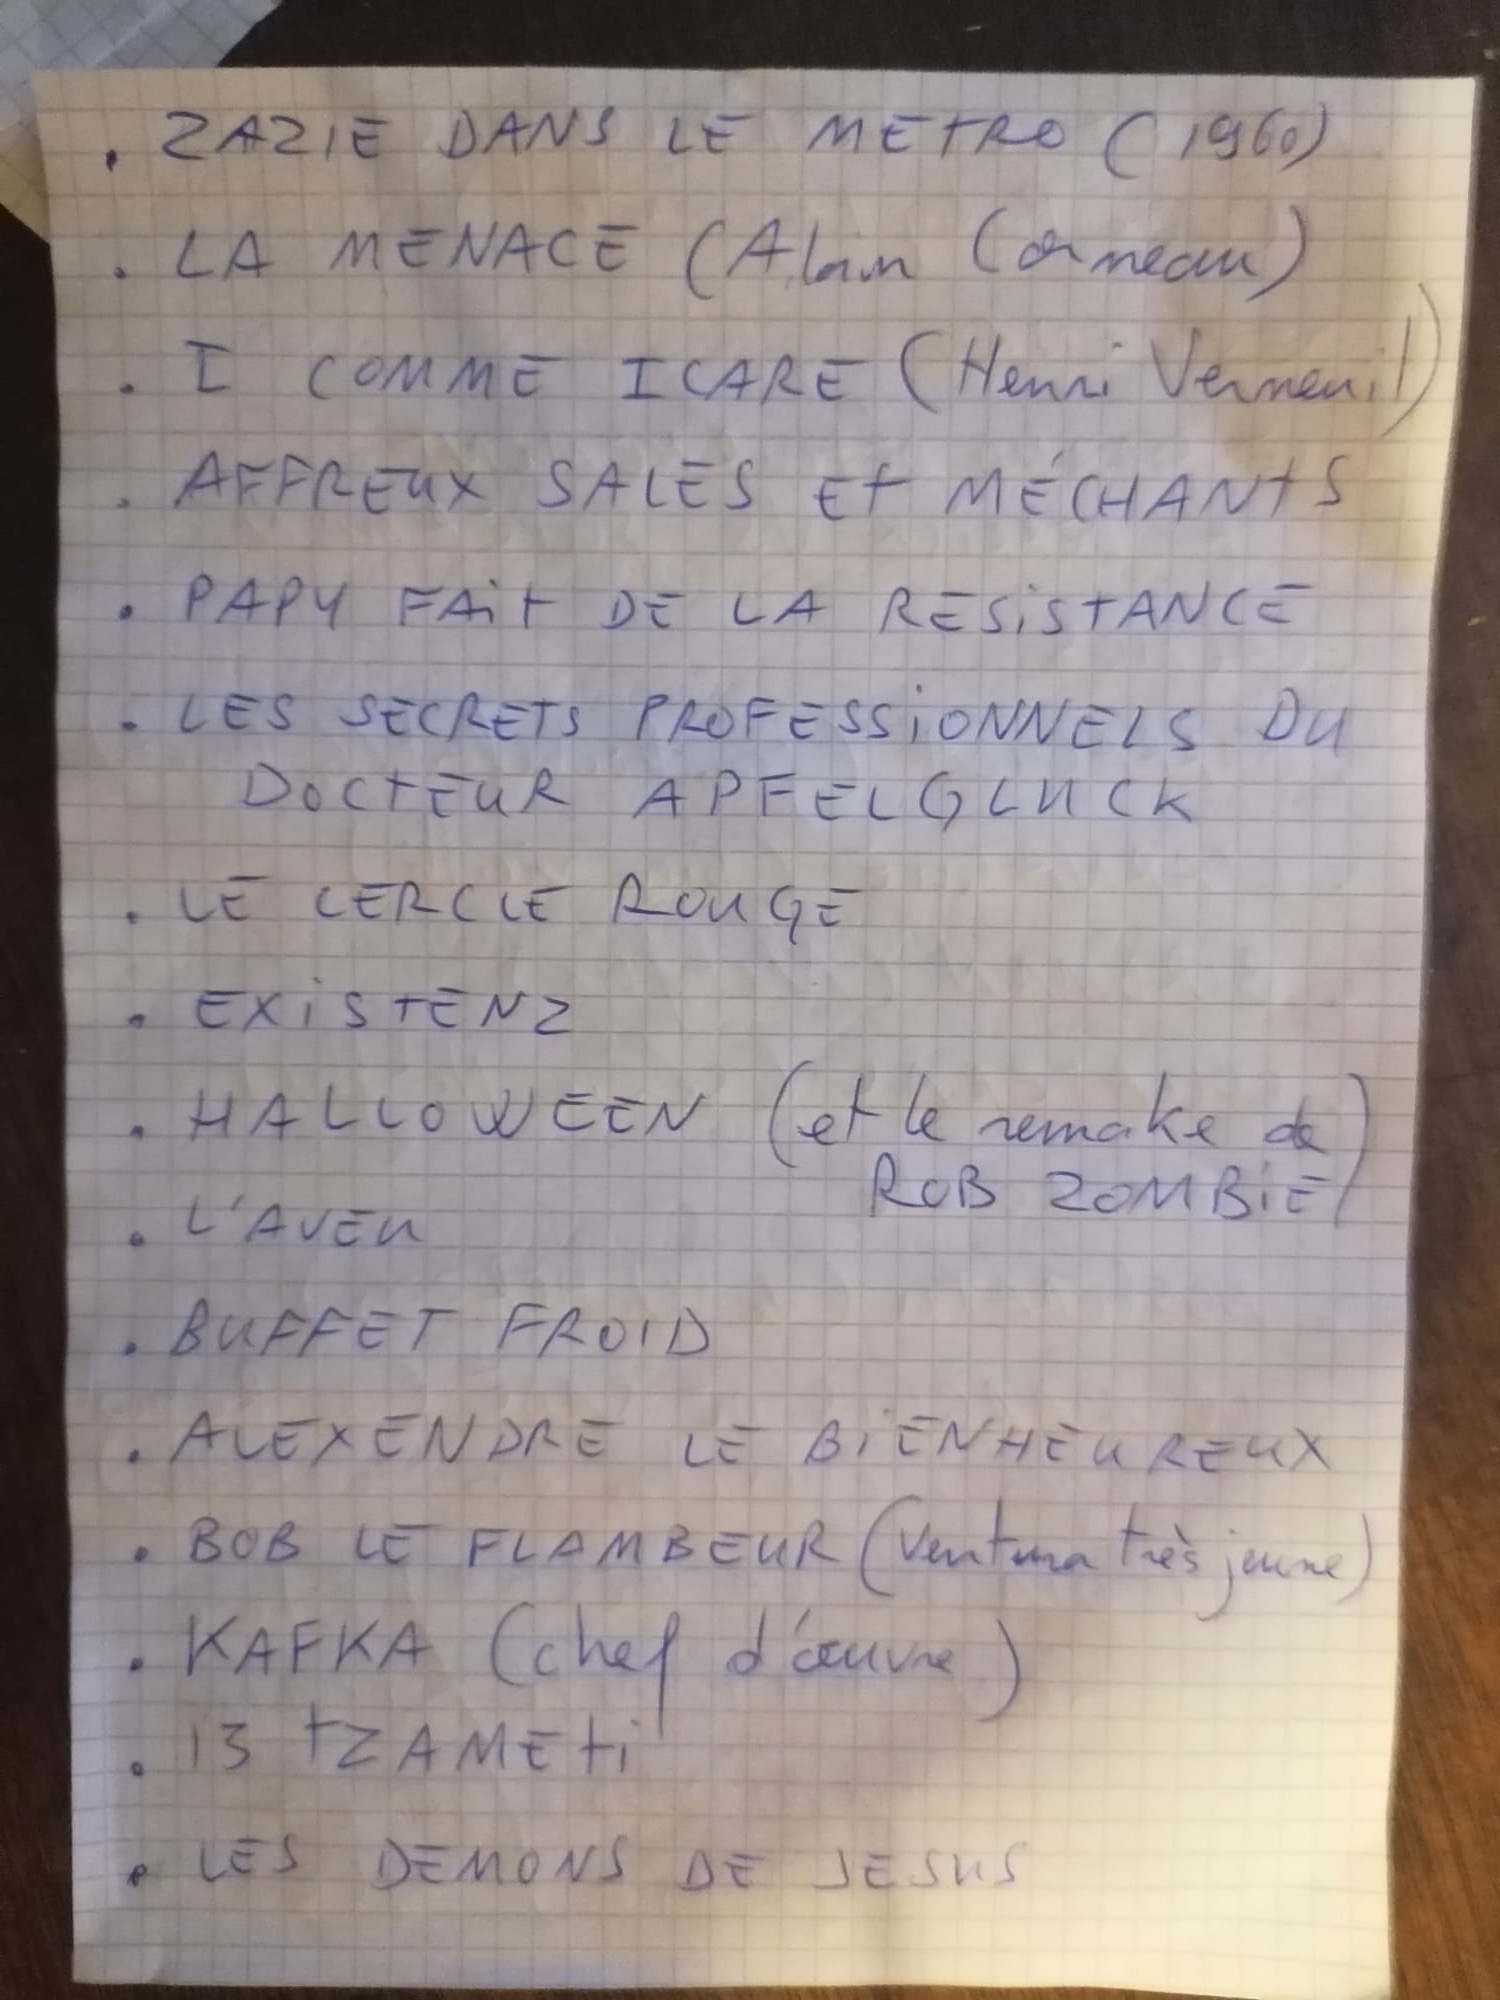 . ZAZIE DANS LE METRO (1960)
. LA MENACE (Alain Corneau)
. I COMME ICARE (Henri Verneuil)
. AFFREUX SALES ET MÉCHANTS
. PAPY FAIT DE LA RESISTANCE
. LES SECRETS PROFESSIONNELS DU
DOCTEUR APFELGLUCK
. LE CERCLE ROUGE
. EXISTENZ
. HALLOWEEN (et le remake de
ROB ZOMBIE)
. L'AVEU
. BUFFET FROID
. ALEXENDRE LE BIENHEUREUX
. BOB LE FLAMBEUR (Ventura très jeune)
. KAFKA (chef d'œuvre)
. 13 TZAMETI
. LES DEMONS DE JESUS